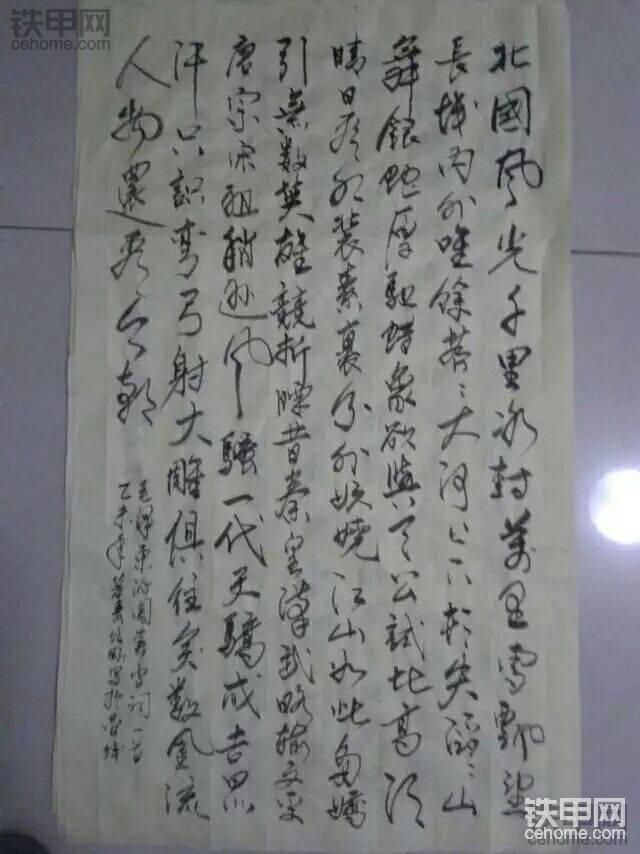 铁甲网
cehome.com
北國風光千里冰封萬里雪飄望
長城内外唯餘莽々大河上下頓失滔々山
舞銀蛇原馳蠟象欲與天公試比高須
晴日看紅裝素裹分外妖嬈江山如此多嬌
引無數英雄競折腰昔秦皇漢武略輸文采
唐宗宋祖稍遜風騷一代天驕成吉思
汗只識彎弓射大雕俱往矣數風流
人物還看今朝
毛澤東沁園春雪詞一首
乙未年
铁甲网
cehome.com